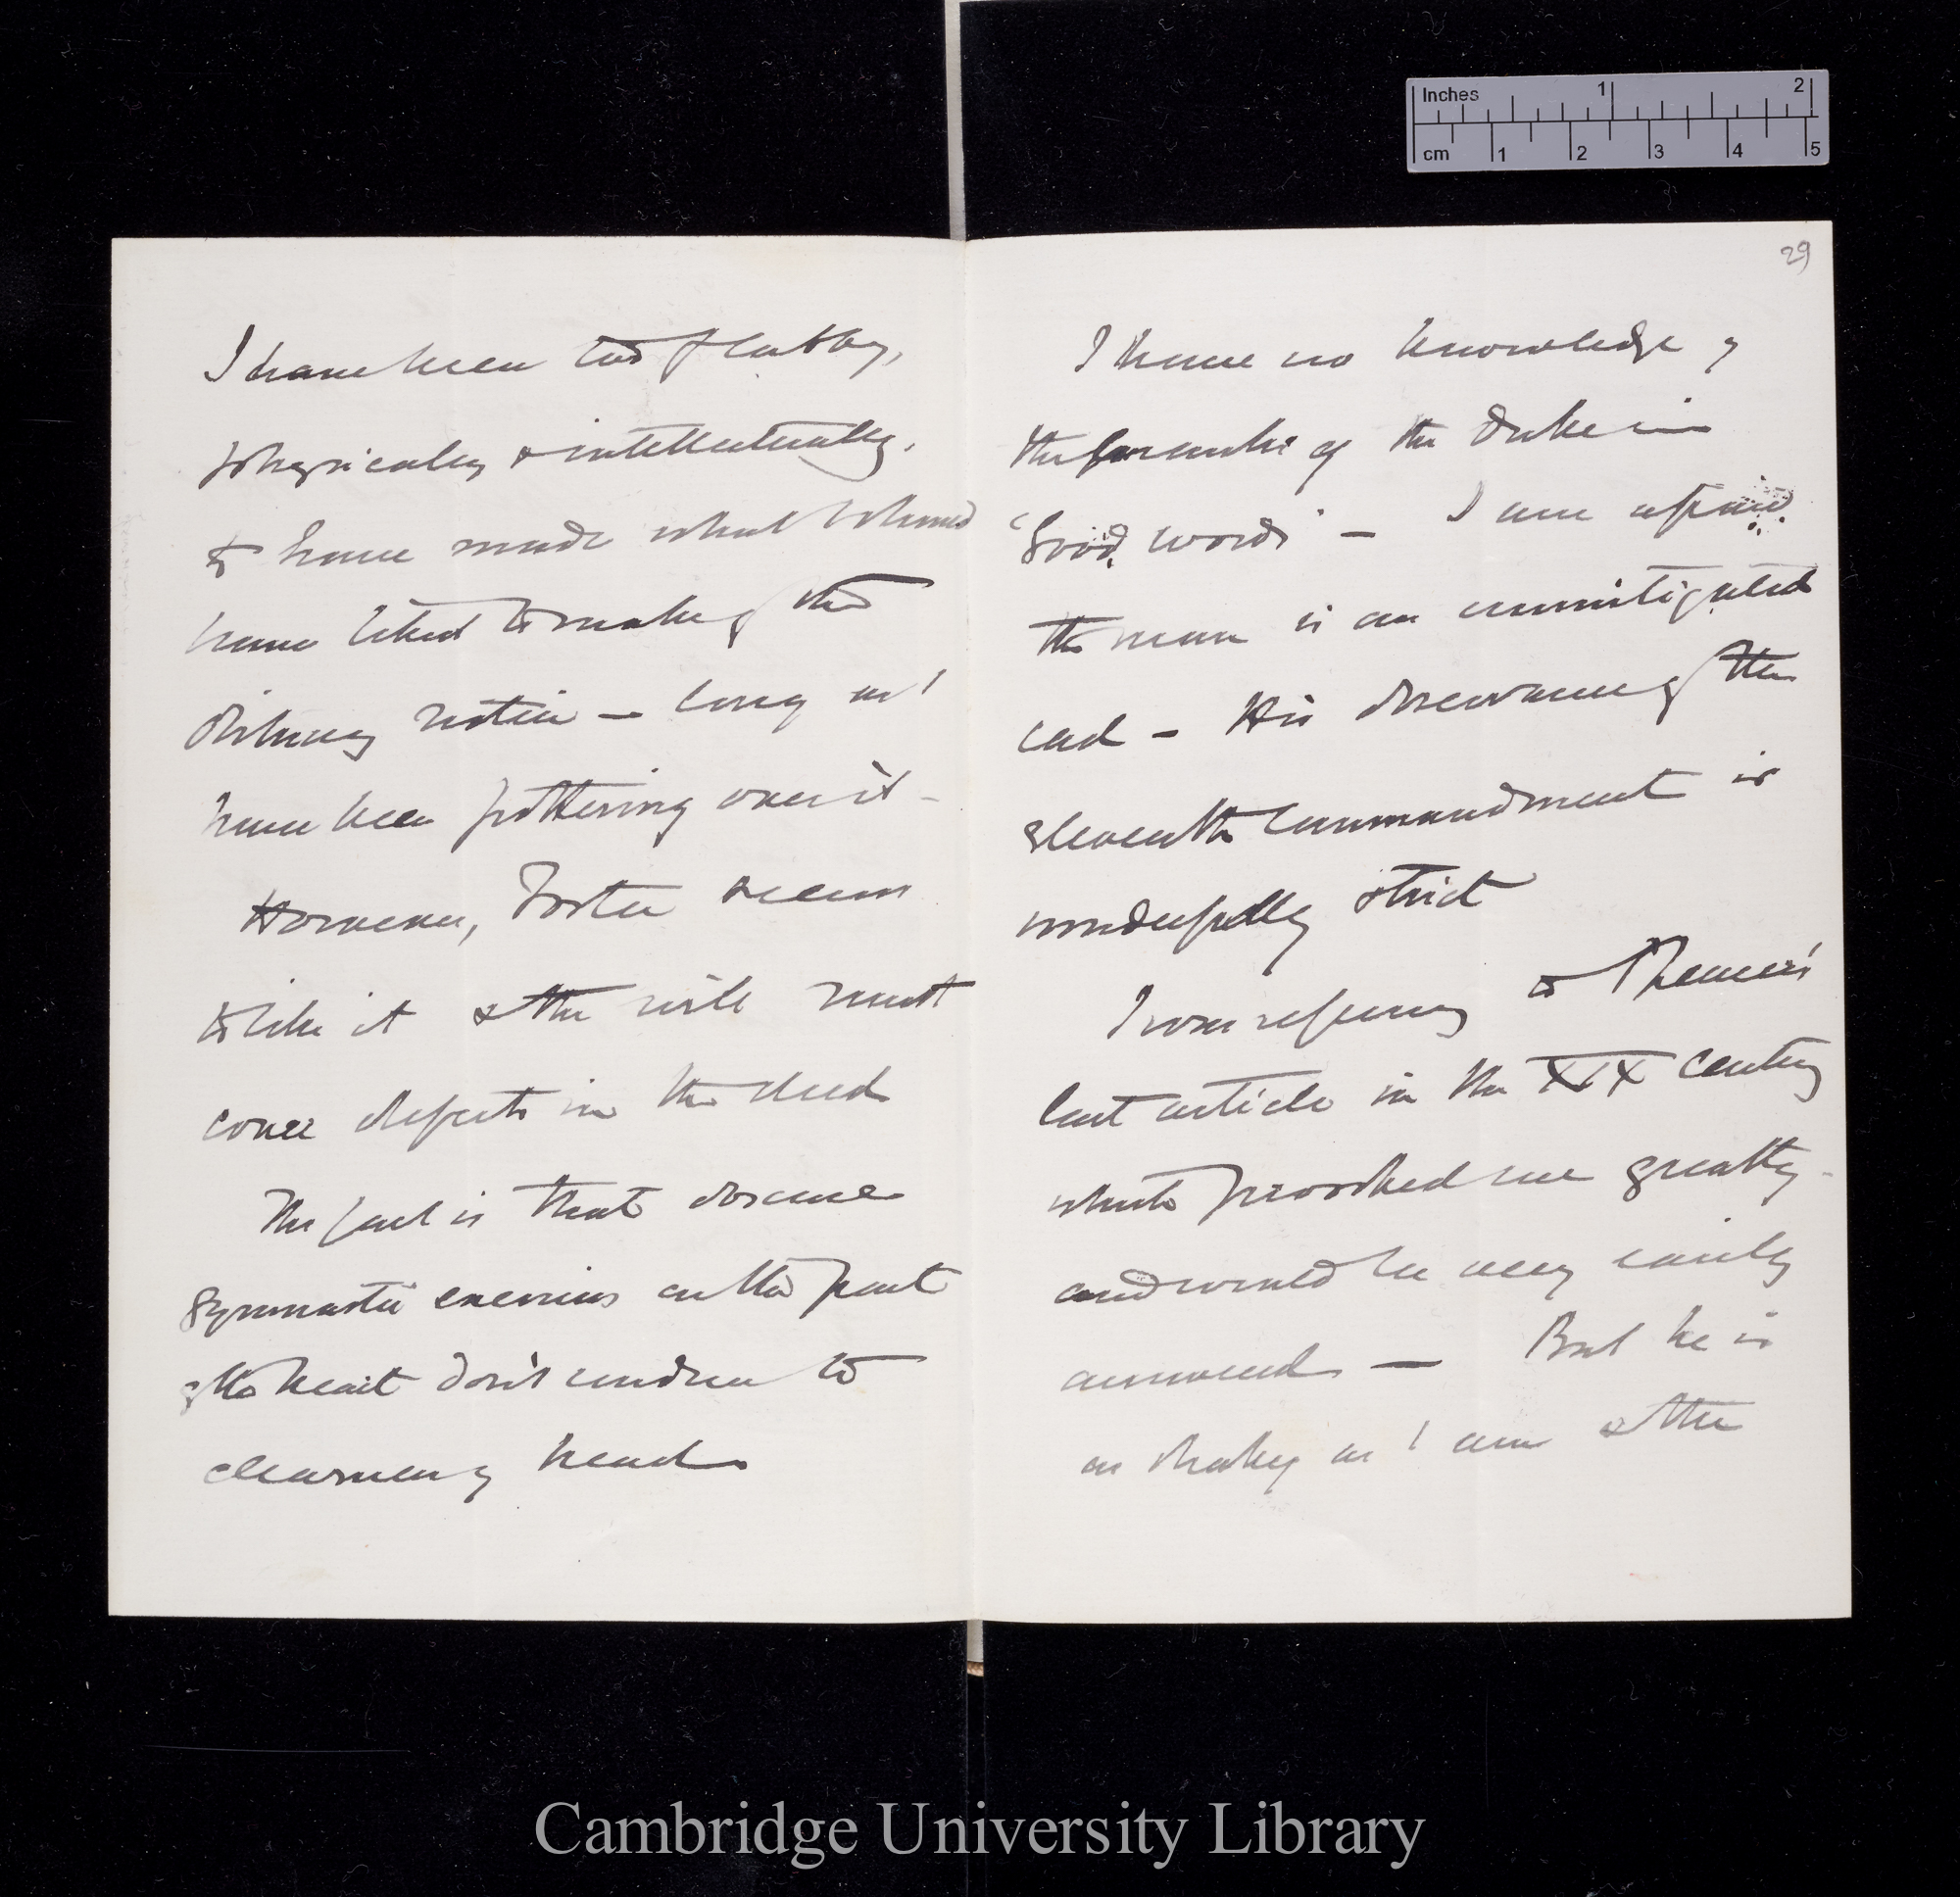 Inches 1 2
cm 1 2 3 4 5
I have been too flabby,
physically & intellectually,
to have made what I should
have liked to make of the
Obituary notice – long as I
have been pottering over it –
However, Foster seems
to like it & the will must
cover defects in the deed
The fact is that obscure
gymnastic exercises on the part
of the heart don't conduce to
clearness of head
29
I have no knowledge of
the remarks of the Duke in
'Good Words' – I am afraid
the man is an unmitigated
cad – His observance of the
eleventh commandment is
wonderfully strict
I was referring to Spencer's
last article in the XIX Century
which provoked me greatly –
and would be very easily
answered – But he is
as shaky as I am & the
Cambridge University Library